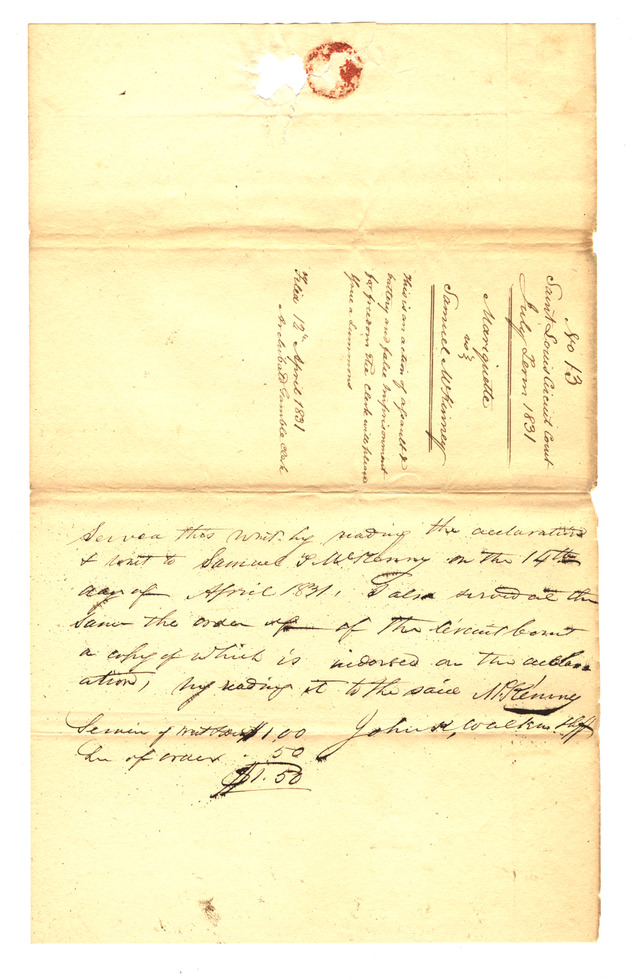 No 13
Saint Louis Circuit Court
July Term 1831
Mariquette
vs
Samuel McKinney
This is an action of assault &
battery and false imprisonment
for freedom The Clerk will please
Issue a Summons
Filed 12th April 1831
Archibald Gamble Clerk
Served this writ by reading the declaration
& writ to Samuel McKenny on the 14th
day of April 1831, I also served at the
same the order of the Circuit Court
a copy of which is indorsed on the declar
ation, by reading it to the said McKenny
Service of writ $1.00 John K, Walker Shff
of order . 50
$1. 50